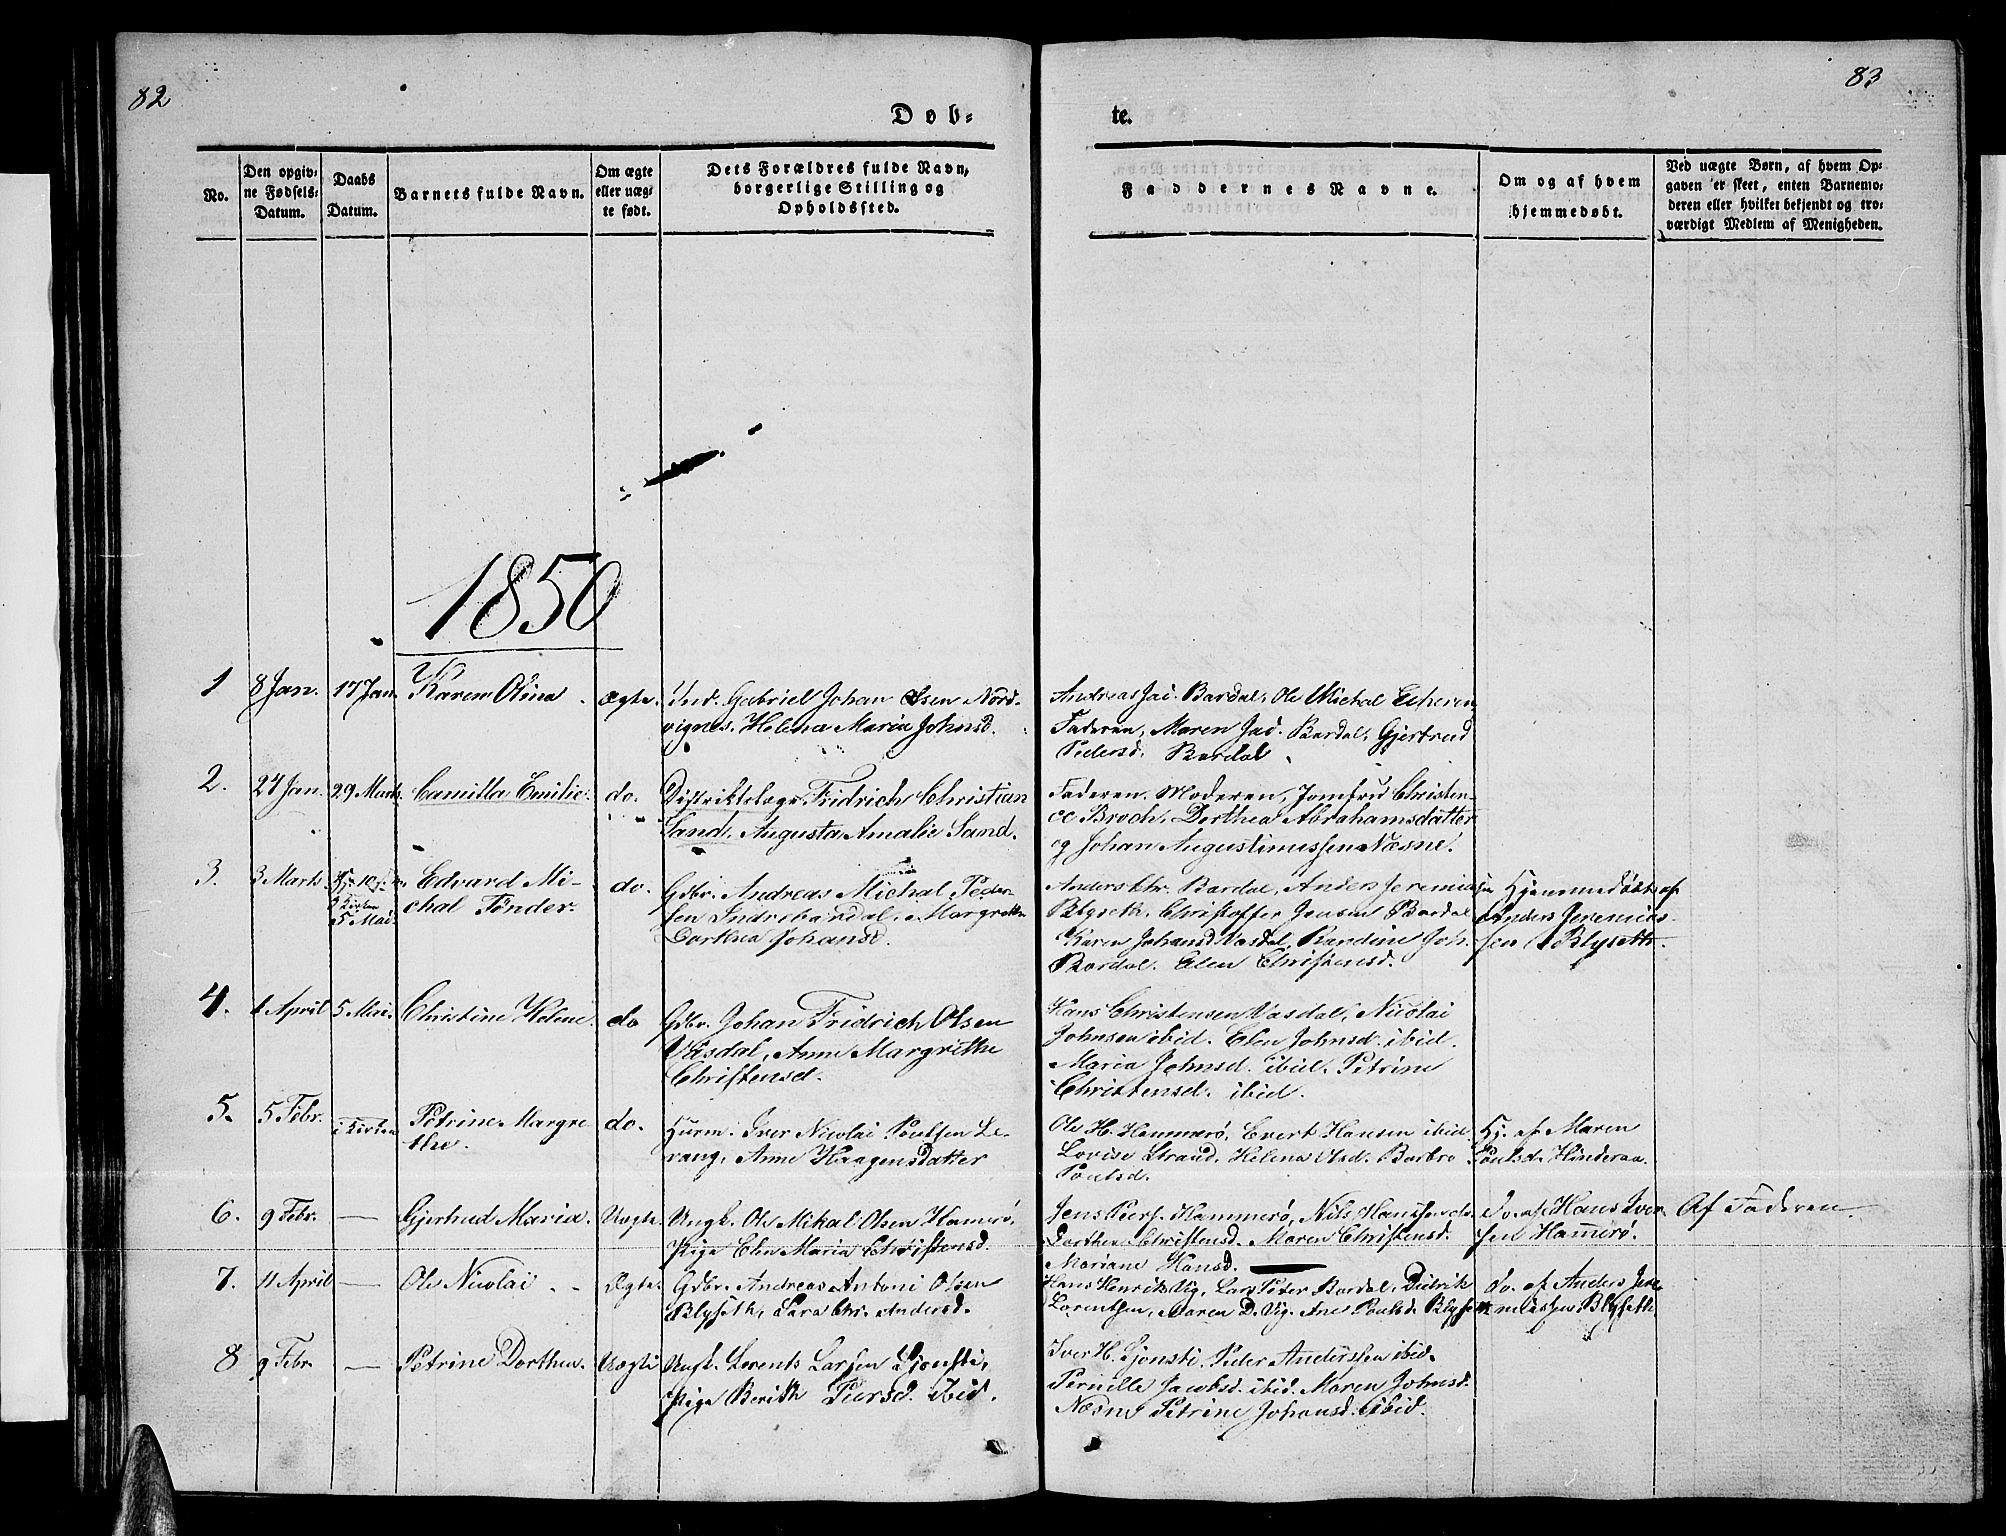 82
83
Døb=
te.
No.
Den opgiv=
ne Fødsels=
Datum.
Daabs
Datum.
Barnets fulde Navn.
Om ægte
eller uæg=
te født.
Dets Forældres fulde Navn,
borgerlige Stilling og
Opholdssted.
Faddernes Navne.
Om og af hvem
hjemmedøbt.
Ved uægte Børn, af hvem Op=
gaven er skeet, enten Barnemo=
deren eller hvilket bekjendt og tro=
værdigt Medlem af Menigheden.
1850
1 8 Jan. 17 Jan. Karen Olina Ægte. Ind. Gabriel Johan Olsen Nord-
vignes. Helena Maria Johnsd.
Andreas Jac. Bardal, Ole Michal
Faderen, Maren Jac. Bardal, Gjertrud
Pedersd. Bardal
2. 24 Jan. 29 Marts. Camilla Emilie. do. Distriktslæge Fridrich Christian
Sand. Augusta Amalie Sand.
Faderen. Moderen, Jomfru Christen-
ce Broch, Dorthea Abrahamsdatter
og Johan Augustinussen Næsne.
3. 3 Marts. i Kirken
5 Mai. Edvard Mi-
chal Tønder. do. Gdbr. Andreas Michal Peder-
sen Indrebardal, Margrethe
Dorthea Johansd.
Anders Chr. Bardal, Anders Jeremiassen
Blyseth. Christoffer Jensen Bardal
Karen Johansd. Vasdal, Joh.
Bardal. Elen Christensd.
Hjemmedøbt af
Anders Jeremias-
sen Blyseth.
4. 1 April 5 Mai. Christine Helene. do Gdbr. Johan Fridrich Olsen
Vasdal, Anne Margrethe
Christensd.
Hans Christensen Vasdal, Nicolai
Johnsen ibid. Elen Johnsd. ibid.
Maria Johnsd. ibid. Petrine
Christensd. ibid.
5. 5 Febr. i Kirken Petrine Margre
the. do. Husm. Iver Nicolai Poulsen Le-
rang, Anne Haagensdatter
Ole H. Hammerø, Evert Hansen ibid.
Lovise Strand, Helena Olsd. Barbro
Poulsd.
Hj. af Maren
Poulsd. Hinderaa.
6. 9 Febr. — Gjertrud Maria. Uægte. Ungk. Ole Mikal Olsen Hamerø,
Pige Elen Maria Christensd.
Jens Peers. Hammerø, Nils Hansen do.
Dorthea Christensd. Maren Christensd.
Mariane Hansd.
do. af Hans Iver-
sen Hamerø.
Af Faderen.
7. 11 April — Ole Nicolai Ægte. Gdbr. Andreas Antoni Olsen
Blyseth, Sara Chr. Andersd.
Hans Henrik Vig, Lars Peter Bardal, Didrik
Lorentsen, Maren D. Vig. Ane Poulsd. Blyseth
do. af Anders Jere
miassen Blyseth.
8 9 Febr. — Petrine Dorthea. Uægte Ungk. Lorents Larsen Sjonsti,
Pige Berith Peersd. ibid.
Iver H. Sjonsti, Peder Anderssen ibid.
Pernille Jacobsd. ibid. Maren Johnsd.
Næsne Petrine Johansd. ibid.